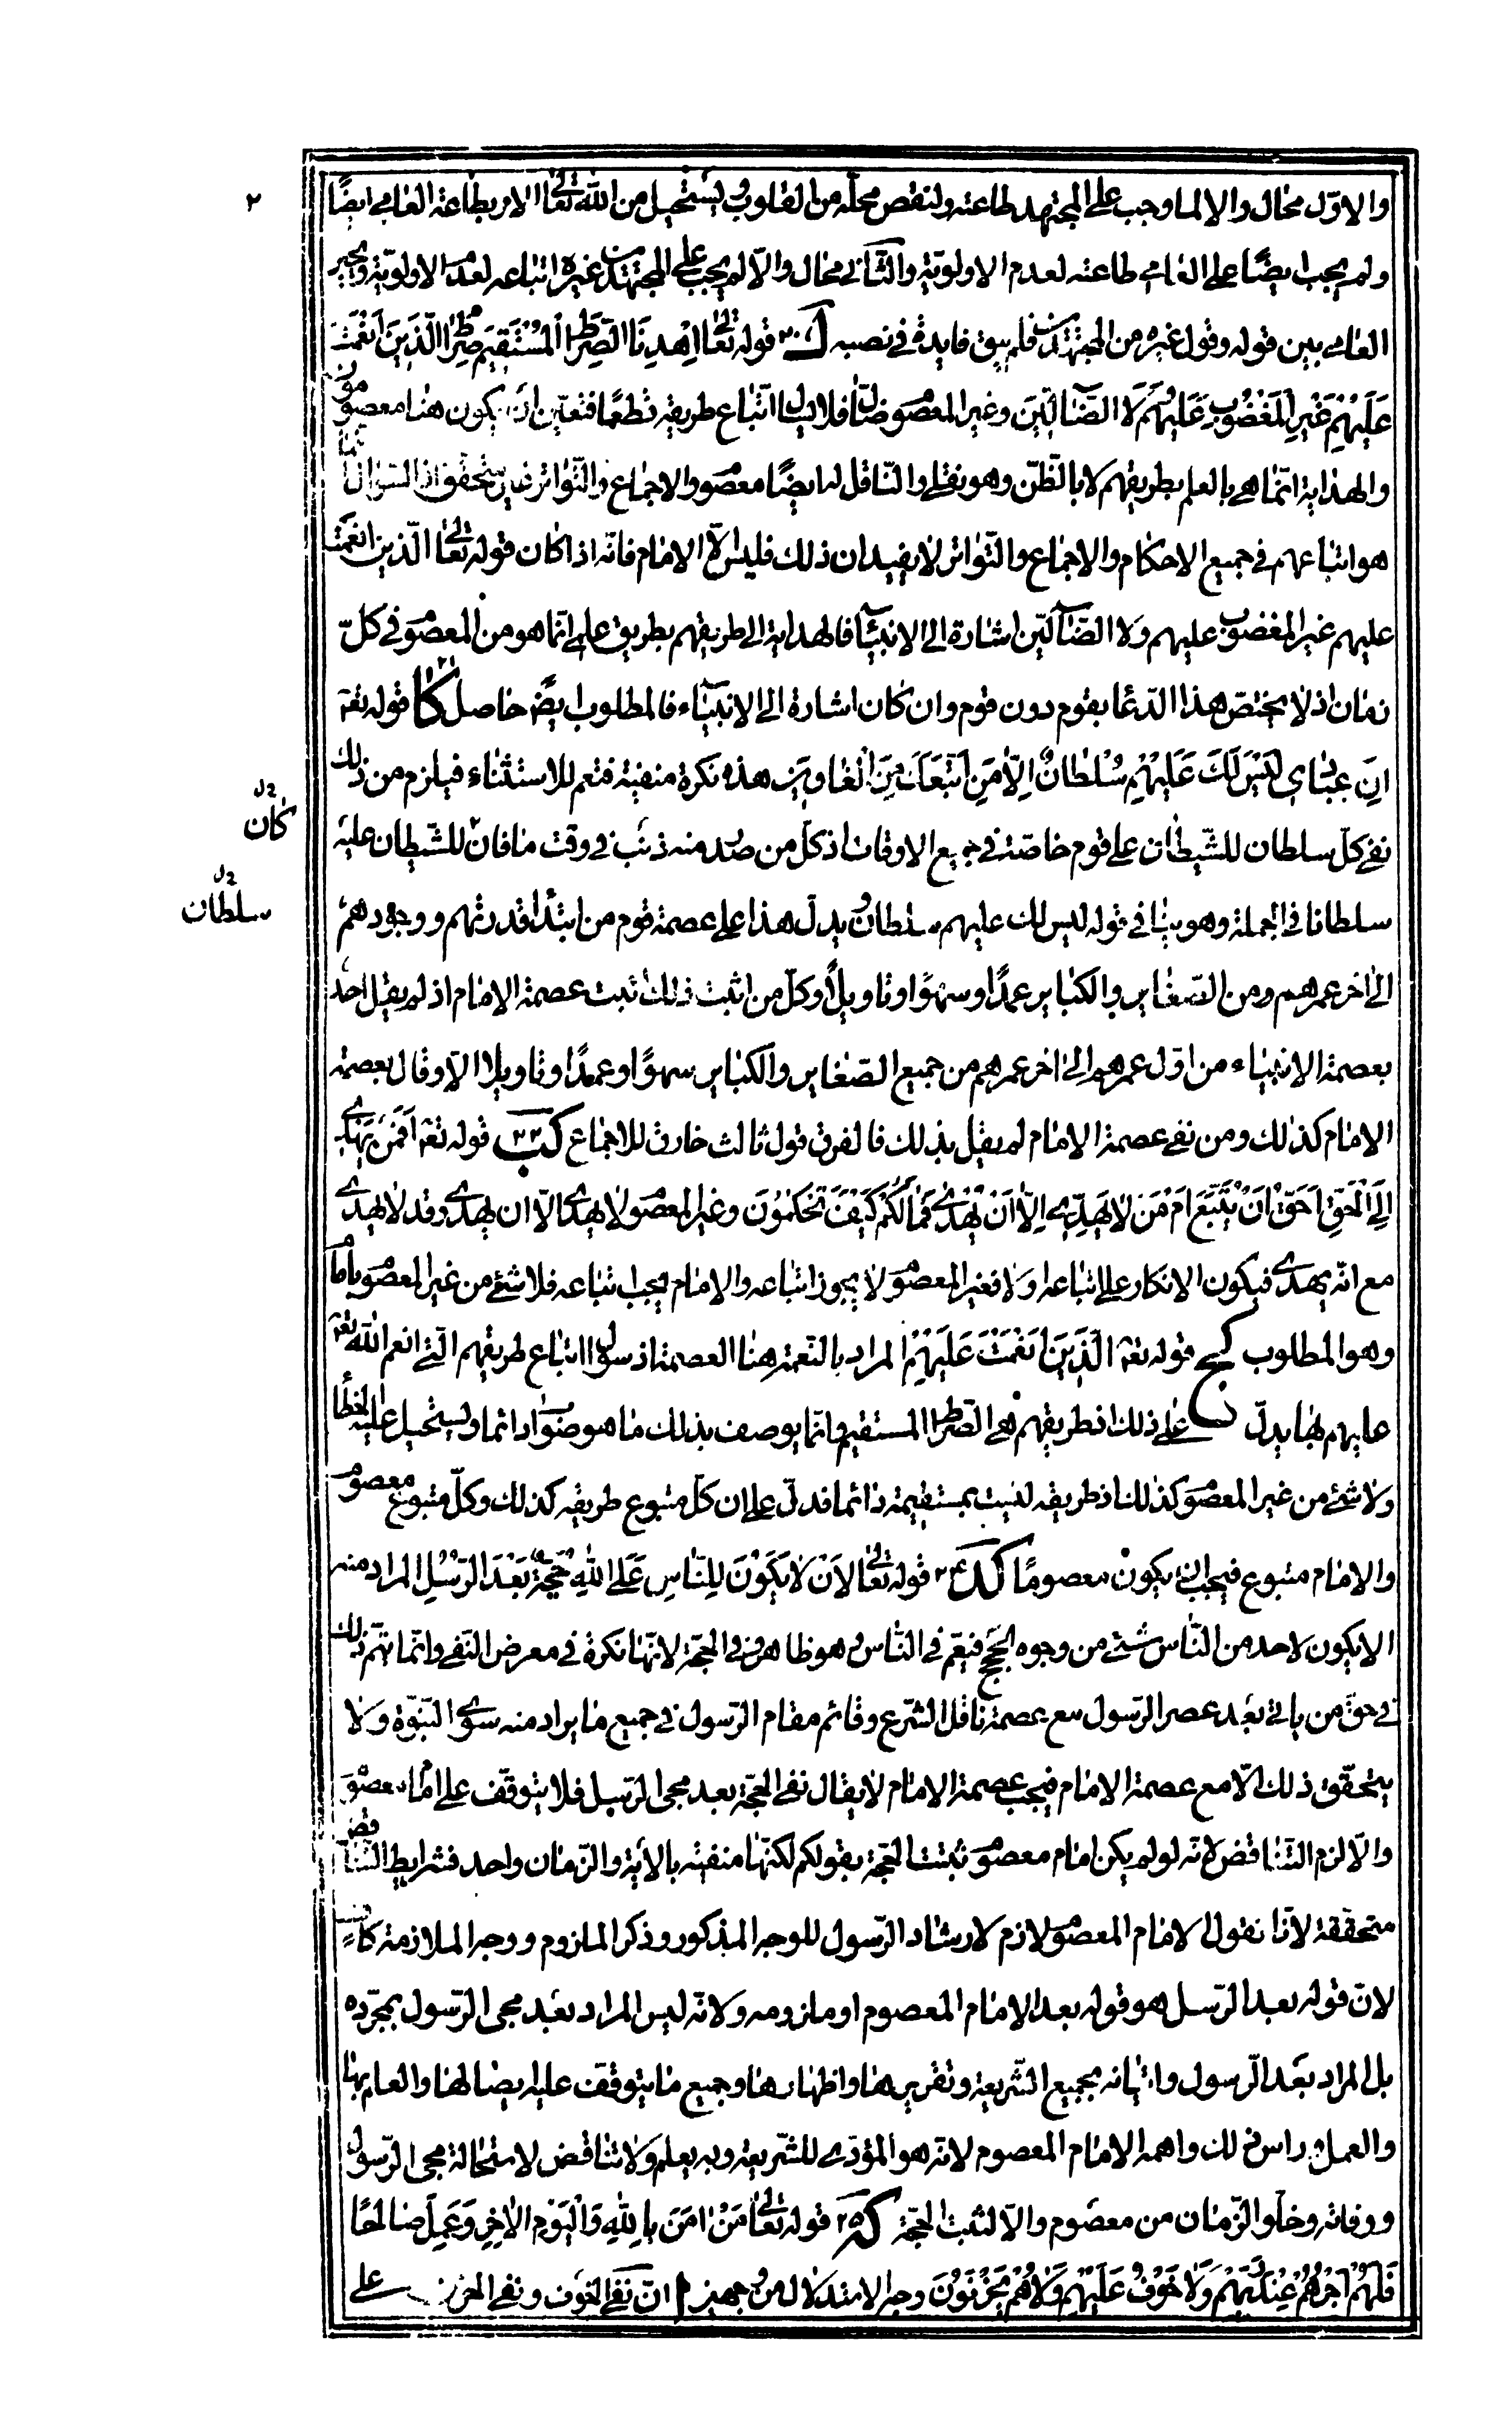 ٢
والاوّل محال والا لما وجب على المجتهد طاعته ولنقص محلّه من القلوب ويستحيل من اللّه تعالى الامر بطاعة العامي ايضًا
ولم يجب ايضًا على العامي طاعته لعدم الاولويّة والثّاني محال والاّ لم يجب على المجتهدين غيره اتباعه لعدم الاولويّة ويخير
العامي بين قوله وقول غيره من المجتهدين فلم يبق فايدة في نصبه ك ٢٠ قوله تعالى اِهْدِنَا الصِّرٰطَ الْمُسْتَقيمَ صِرٰطَ الَّذينَ اَنْعَمْتَ
عَلَيْهِمْ غَيْرِ الْمَغْضُوبِ عَلَيْهِمْ وَلَا الضّٰآلّينَ وغير المعصوم ضالّ فلا يسال اتّباع طريقه قطعًا فتعيّن ان يكون هنا معصومون
والهداية انّما هي بالعلم بطريقهم لا بالظّن وهو نقلي والنّاقل له ايضًا معصوم والاجماع والتّواتر غير متحقق اذ السّؤال انّما
هو اتباعهم في جميع الاحكام والاجماع والتّواتر لا يفيدان ذلك فليس الاّ الامام فانّه اذا كان قوله تعالى الّذين انعمت
عليهم غير المغضوب عليهم ولا الضّآلّين اشارة الى الانبيآء فالهداية الى طريقهم بطريق علمي انّما هو من المعصوم في كلّ
زمان اذ لا يختصّ هذا الدّعا بقوم دون قوم وان كان اشارة الى الانبيآء فالمطلوب ايضًا حاصل كا ٢١ قوله تعم
اِنَّ عِبٰادي لَيْسَ لَكَ عَلَيْهِمْ سُلْطٰانٌ اِلاّٰ مَنِ اتَّبَعَكَ مِنَ الْغٰاوينَ هذه نكرة منفية فتعم للاستثناء فيلزم من ذلك
نفي كلّ سلطان للشّيطان على قوم خاصّة في جميع الاوقات اذ كلّ من صدر منه ذنب في وقت ما فان للشّيطان عليه
كان
سلطانا في الجملة وهو ينافي قوله ليس لك عليهم سلطان ويدلّ هذا على عصمة قوم من ابتدآء قدرتهم ووجودهم
سلطان
الى اخر عمرهم ومن الصّغاير والكباير عمدًا وسهوًا وتاويلًا وكلّ من اثبت ذلك ثبت عصمة الامام اذ لم يقل احد
بعصمة الانبياء من اوّل عمرهم الى اخر عمرهم من جميع الصّغاير والكباير سهوًا وعمدًا وتاويلا الاّ وقال بعصمة
الامام كذلك ومن نفي عصمة الامام لم يقل بذلك فالفرق قول ثالث خارق للاجماع كب ٢٢ قوله تعم اَفَمَنْ يَهْدي
اِلَى الْحَقِّ اَحَقُّ اَنْ يُتَّبَعَ اَمْ مَنْ لاٰ يَهِدّي اِلاّٰ اَنْ يُهْدىٰ فَمٰا لَكُمْ كَيْفَ تَحْكُمُونَ وغير المعصوم لا يهدي الاّ ان يهدى وقد لا يهدي
مع انّه يهدى فيكون الانكار على اتباعه اولا فغير المعصوم لا يجوز اتباعه والامام يجب اتباعه فلا شئ من غير المعصوم بامام
وهو المطلوب كج قوله تعم الَّذينَ اَنْعَمْتَ عَلَيْهِمْ المراد بالنّعمة هنا العصمة اذ سؤال اتباع طريقهم الّتي انعم اللّه تعم
عليهم بها يدلّ على ذلك اذ طريقهم هي الصّراط المستقيم وانّما يوصف بذلك ما هو صواب دائما ويستحيل عليه الخطأ
ولا شئ من غير المعصوم كذلك اذ طريقه ليست بمستقيمة دائما فدلّ على ان كلّ متبوع طريقه كذلك وكلّ متبوع معصوم
والامام متبوع فيجب ان يكون معصومًا كد ٢٤ قوله تعالى لاَنْ لاٰ يَكُونَ لِلنّٰاسِ عَلَى اللّٰهِ حُجَّةٌ بَعْدَ الرُّسُلِ المراد منه
الا يكون لاحد من النّاس شئ من وجوه الحجج فيعم في النّاس وهو ظاهر وفي الحجّة لانّها نكرة في معرض النّفي وانّما تتم ذلك
في حقّ من ياتي بعد عصر الرّسول مع عصمة ناقل الشّرع وقائم مقام الرّسول في جميع ما يراد منه سوى النّبوّة ولا
يتحقّق ذلك الاّ مع عصمة الامام فيجب عصمة الامام لا يقال نفي الحجّة بعد مجئ الرّسل فلا يتوقّف على امام معصوم
والاّ لزم التّناقض لانّه لو لم يكن امام معصوم ثبتت الحجّة بقولكم لكنّها منفية بالاية والزّمان واحد فشرايط التناقض
متحققة لانّا نقول الامام المعصوم لازم لارشاد الرّسول للوجه المذكور وذكر الملزوم ووجه الملازمة كاف
لانّ قوله بعد الرّسل هو قوله بعد الامام المعصوم او ملزومه ولانّه ليس المراد بعد مجئ الرّسول بمجرّده
بل المراد بعد الرّسول واتيانه بجميع الشّريعة وتقريرها واظهارها وجميع ما يتوقف عليه ايصالها والعلم بها
والعمل وراس ذلك واهمه الامام المعصوم لانّه هو المؤدّي للشّريعة وبه يعلم ولا تناقض لاستحالة مجئ الرّسول
ووفاته وخلو الزّمان من معصوم والاّ لثبت الحجّة كه ٢٥ قوله تعالى مَنْ اٰمَنَ بِاللّٰهِ وَالْيَوْمِ الْاٰخِرِ وَعَمِلَ صٰالِحًا
فَلَهُمْ اَجْرُهُمْ عِنْدَ رَبِّهِمْ وَلاٰ خَوْفٌ عَلَيْهِمْ وَلاٰ هُمْ يَحْزَنُونَ وجه الاستدلال من وجهين ا انّ نفي الخوف ونفي الحزن على